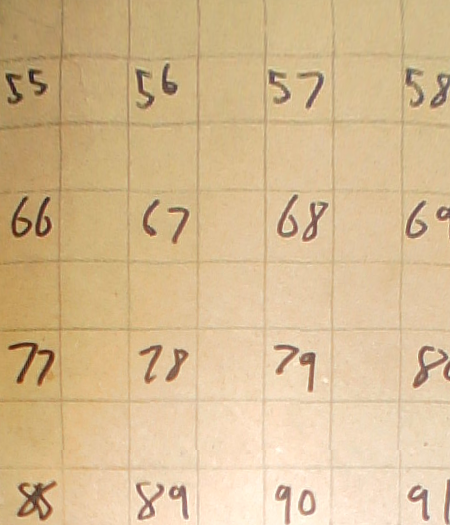 55 56 57 58
66 67 68 69
77 78 79 80
88 89 90 91